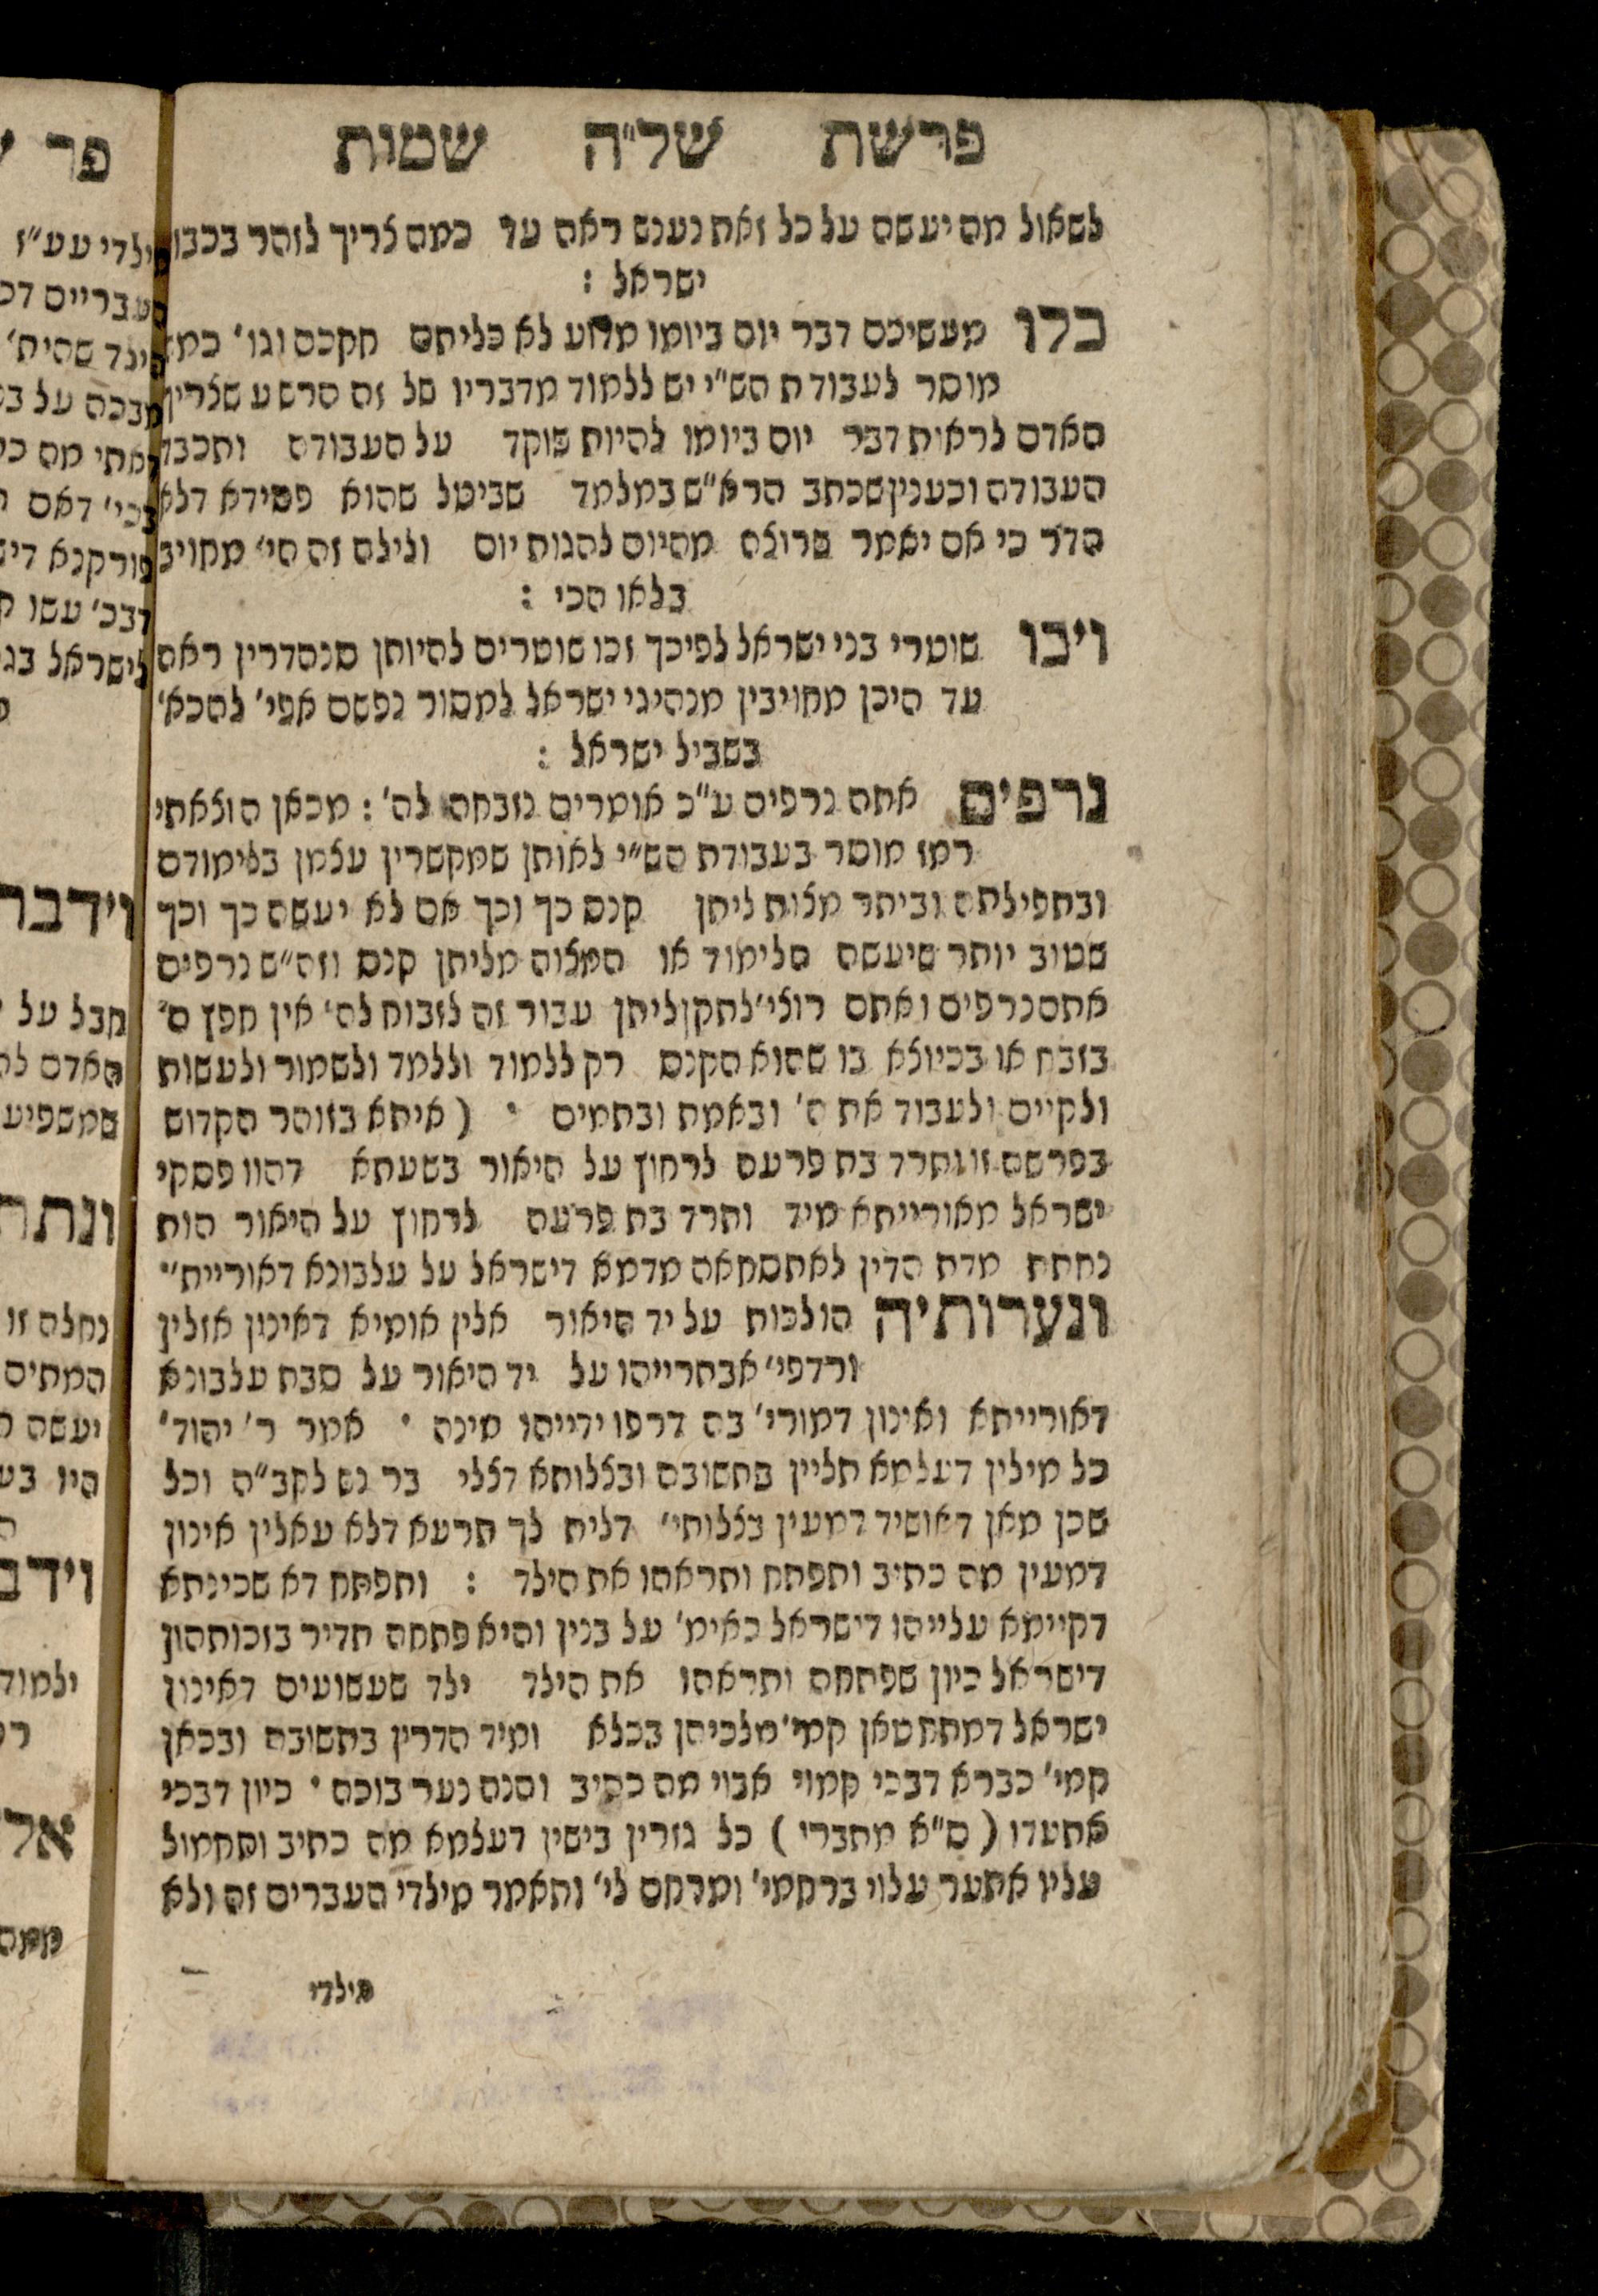 פרשת של"ה שמות
לשאול מה יעשה על כל זאת נענש ראה עד כמה צריך לזהר בכבו
ישראל :
כלו מעשיכם דבר יום ביומו מדוע לא כליתם חקכם וגו' כמה
מוסר לעבודת הש"י יש ללמוד מדבריו של זה הרשע שצריך
האדם לראות דבר יום ביומו להיות פוקד על העבודה ותכבד
העבודה וכענין שכתב הרא"ש במלמד שביטל שהוא פסידא דלא
הדר כי אם יאמר פרוצה מהיום להגות יום ולילה זה הי' מחויב
בלאו הכי :
ויכו שוטרי בני ישראל לפיכך זכו שוטרים להיותן סנהדרין ראה
עד היכן מחויבין מנהיגי ישראל למסור נפשם אפי' להכא'
בשביל ישראל :
נרפים אתם נרפים ע"כ אומרים נזבחה לה' : מכאן הוצאתי
רמז מוסר בעבודת הש"י לאותן שמקשרין עצמן בלימודם
ובתפילתם וביתר מצות ליתן קנס כך וכך אם לא יעשה כך וכך
שטוב יותר שיעשה הלימוד או המצוה מליתן קנס וזה"ש נרפים
אתם נרפים ואתם רוצי' לתקן ליתן עבור זה לזבוח לה' אין חפץ ה'
בזבח או בכיוצא בו שהוא הקנס רק ללמוד וללמד ולשמור ולעשות
ולקיים ולעבוד את ה' ובאמת ובתמים • ( איתא בזוהר הקדוש
בפרשה זו ותרד בת פרעה לרחוץ על היאור בשעתא דהוו פסקי
ישראל מאורייתא מיד ותרד בת פרעה לרחוץ על היאור הות
נחתת מדת הדין לאתסחאה מדמא דישראל על עלבונא דאורייתי"
ונערותיה הולכות על יד היאור אלין אומיא דאינון אזלין
ורדפי' אבתרייהו על יד היאור על סבת עלבונא
דאורייתא ואינון דמורי' בה דרפו ידייהו מינה • אמר ר' יהוד'
כל מילין דעלמא תליין בתשובה ובצלותא דצלי בר נש לקב"ה וכל
שכן מאן דאושיד דמעין בצלותי' דלית לך תרעא דלא עאלין אינון
דמעין מה כתיב ותפתח ותראהו את הילד : ותפתח דא שכינתא
דקיימא עלייהו דישראל כאימ' על בנין והיא פתחה תדיר בזכותהון
דישראל כיון שפתחה ותראהו את הילד ילד שעשועים דאינון
ישראל דמתחטאן קמי' מלכיהן בכלא ומיד הדרין בתשובה ובכאן
קמי' כברא דבכי קמוי אבוי מה כתיב והנה נער בוכה • כיון דבכי
אתעדו ( ס"א מתברי ) כל גזרין בישין דעלמא מה כתיב ותחמול
עליו אתער עלוי ברחמי' ומרחם לי' ותאמר מילדי העברים זה ולא
מילדי